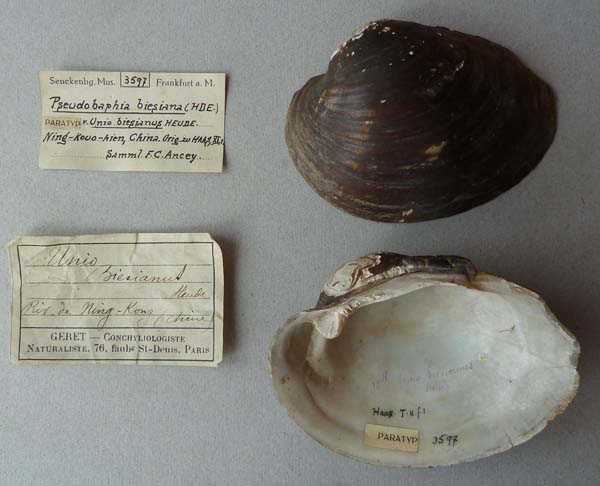 Senckenbg. Mus. 3597 Frankfurt a. M.
Pseudobaphia biesiana (HDE.)
PARATYP v. Unio biesianus HEUDE.
Ning-kouo-hien, China. Orig. zu HAAS,
Samml. F.C. Ancey
Unio
Biesianus
Heude
Riv. de Ning-Kong
Chine
GERET — CONCHYLIOLOGISTE
NATURALISTE, 76, faubg St-Denis, PARIS
Unio biesianus
Haas T. 11 f. 1
PARATYP 3597